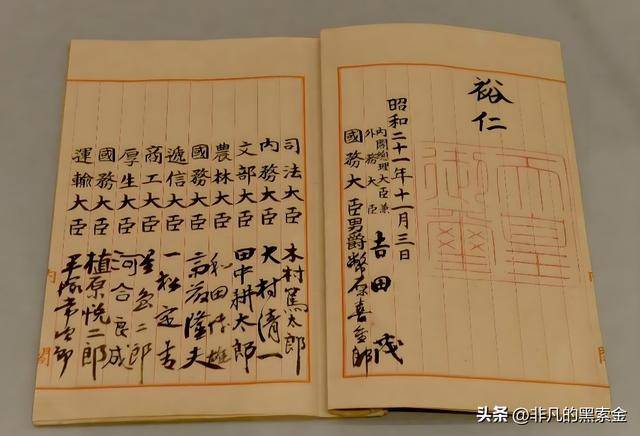 裕仁
天皇御璽
昭和二十一年十一月三日
内閣総理大臣兼
外務大臣 吉田茂
國務大臣男爵幣原喜重郎
司法大臣 木村篤太郎
内務大臣 大村清一
文部大臣 田中耕太郎
農林大臣 和田博雄
國務大臣 斎藤隆夫
遞信大臣 一松定吉
商工大臣 星島二郎
厚生大臣 河合良成
國務大臣 植原悦二郎
運輸大臣 平塚常次郎
内
閣
閣
头条 @非凡的黑索金